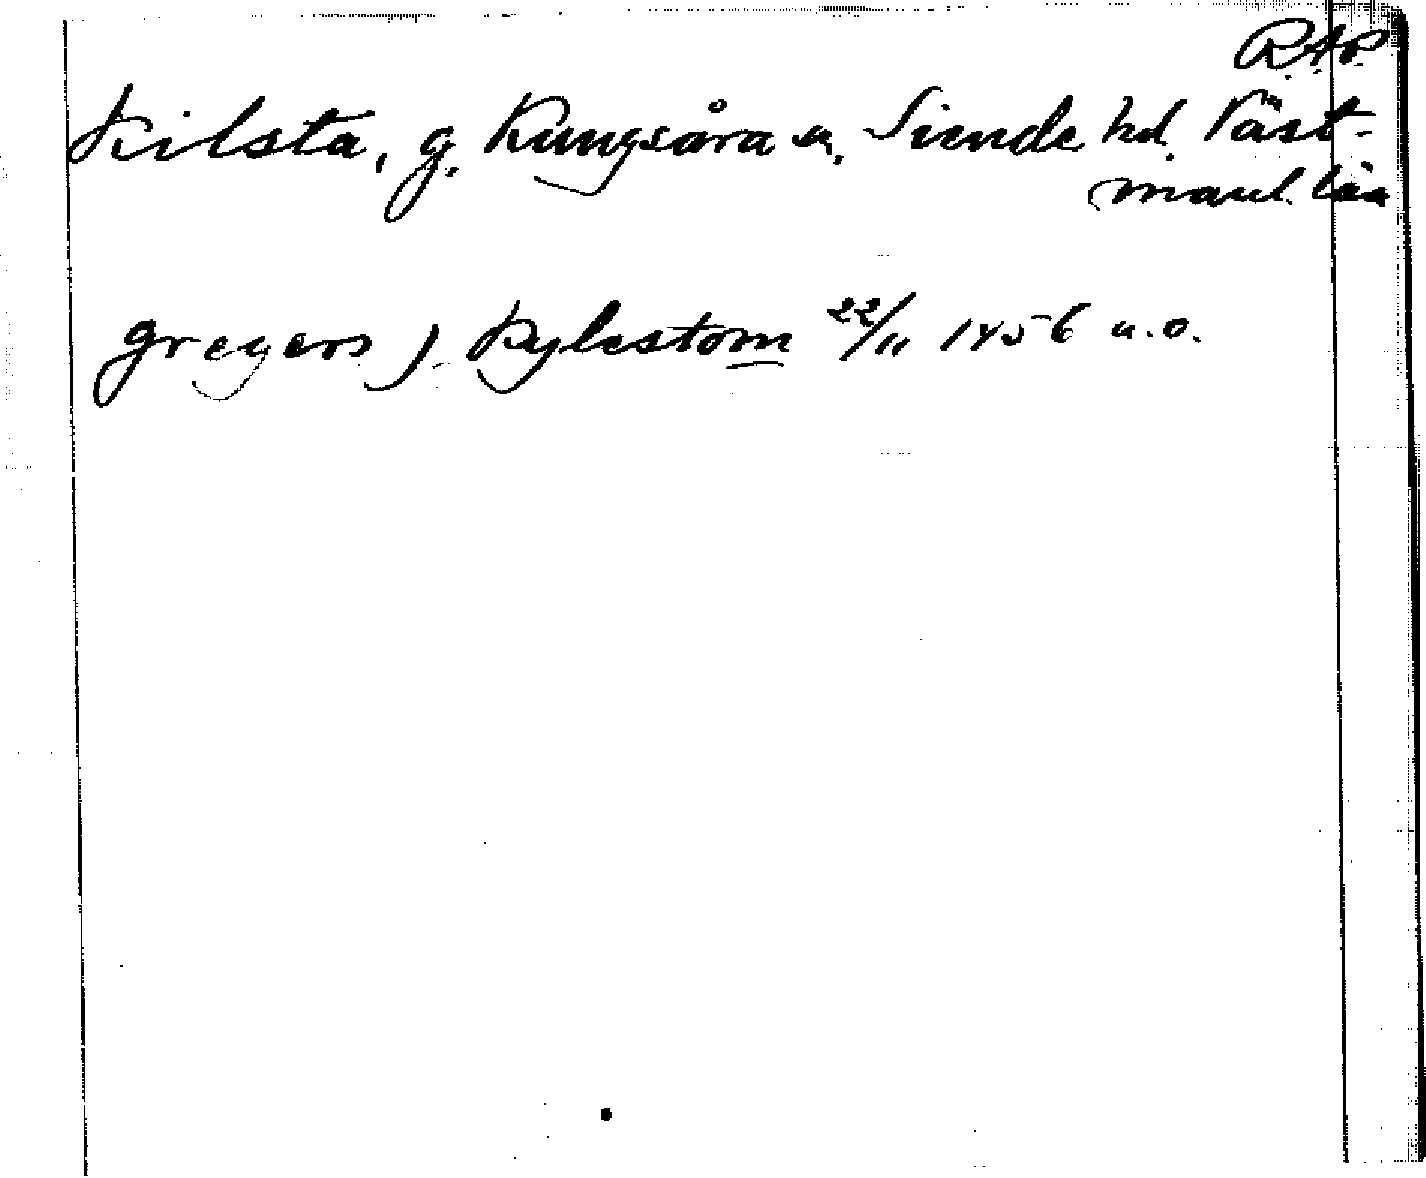 R.A.P.
Kilsta, g. Kungsåra sn. Siende hd. Väst-
manl. län
gregers j Kylestom 22/11 1456 u.o.